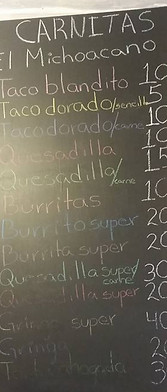 CARNITAS
El Michoacano
Taco blandito 10
Taco dorado/sencillo 5
Taco dorado/carne 10
Quesadilla 15
Quesadilla/carne
Burritas 10
Burrito super 20
Burrita super 20
Quesadilla super/carne 30
Quesadilla super 20
Gringa super 40
Gringa